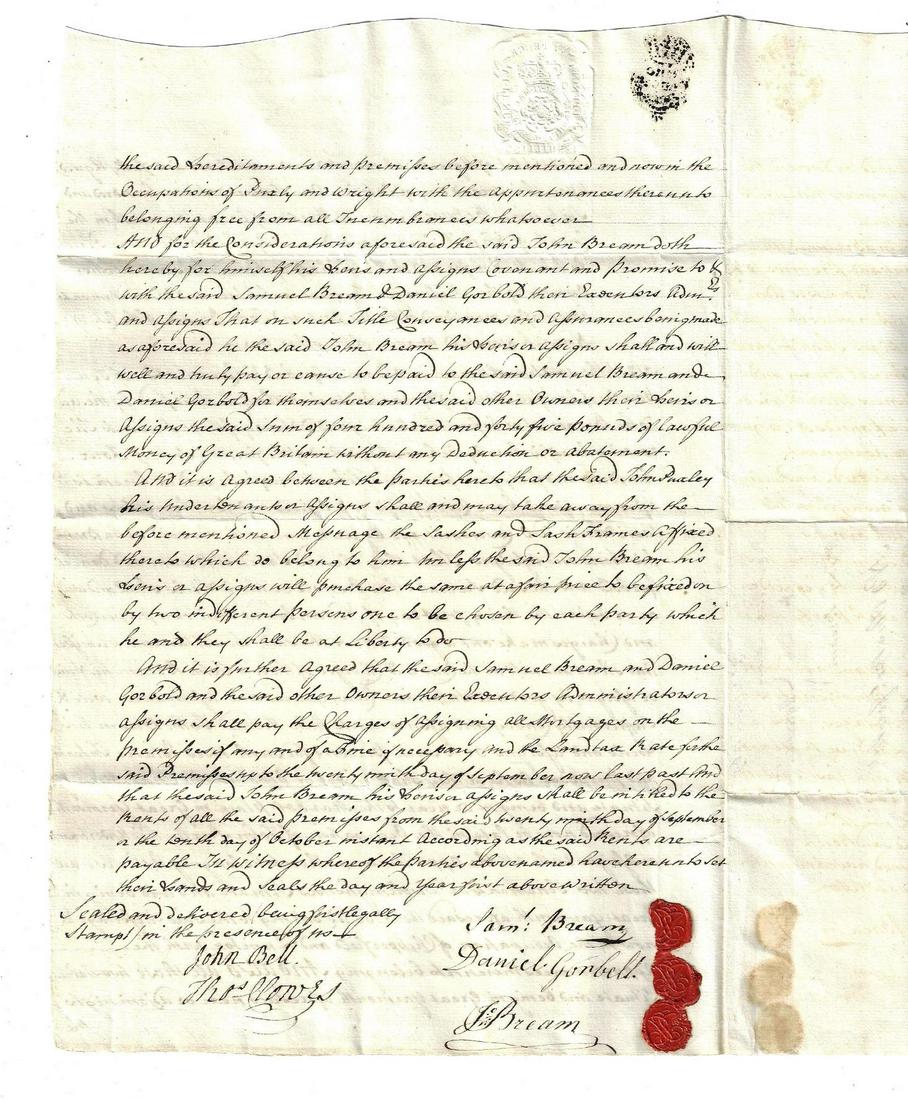 the said Hereditaments and premisses before mentioned and now in the
Occupations of Puxly and Wright with the Appurtenances thereunto
belonging free from all Incumbrances whatsoever
And for the Considerations aforesaid the said John Bream doth
hereby for himself his Heirs and Assigns Covenant and Promise to &
with the said Samuel Bream & Daniel Gorbold their Executors Admrs.
and Assigns That on such Title Conveyances and Assurances being made
as aforesaid he the said John Bream his Heirs or Assigns shall and will
well and truly pay or cause to be paid to the said Samuel Bream and
Daniel Gorbold for themselves and the said other Owners their Heirs or
Assigns the said Sum of four hundred and forty five pounds of lawful
Money of Great Britain without any Deduction or Abatement.
And it is Agreed between the parties hereto that the said John Puxley
his Undertenants or Assigns shall and may take away from the
before mentioned Messuage the Sashes and Sash Frames affixed
thereto which do belong to him Unless the said John Bream his
Heirs or assigns will purchase the same at a fair price to be fixed on
by two indifferent persons one to be chosen by each party which
he and they shall be at Liberty to do
And it is further Agreed that the said Samuel Bream and Daniel
Gorbold and the said other Owners their Executors Administrators or
assigns shall pay the Charges of Assigning all Mortgages on the
premisses if any and of a Fine if necessary and the Land tax Rate for the
said Premisses up to the twenty ninth day of September now last past And
that the said John Bream his Heirs or Assigns shall be intitled to the
Rents of all the said premisses from the said twenty ninth day of September
or the tenth day of October instant According as the said Rents are
payable In Witness whereof the Parties abovenamed have hereunto set
their Hands and Seals the day and Year first above written
Sealed and delivered being first legally
Stampt / in the presence of us
John Bell.
Thos. Clowes
Saml: Bream
Daniel Gorbell
Jn. Bream